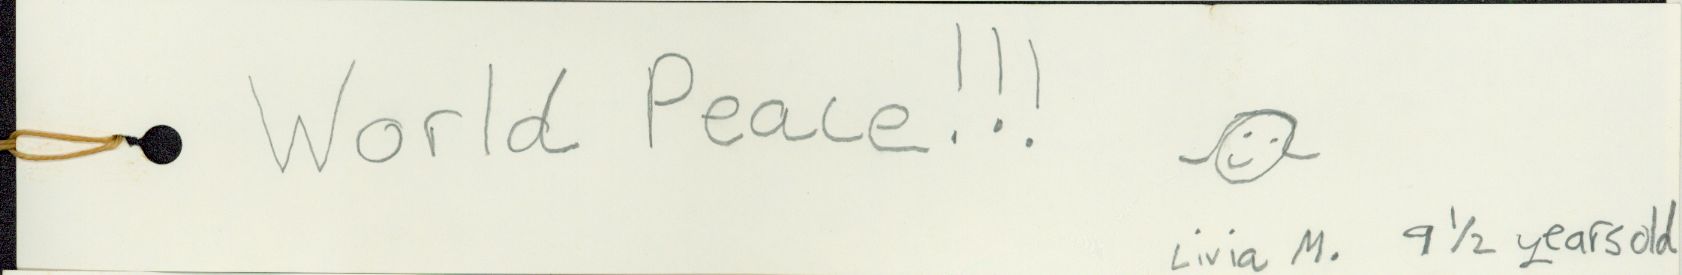 World Peace!!!
Livia M. 9 1/2 years old